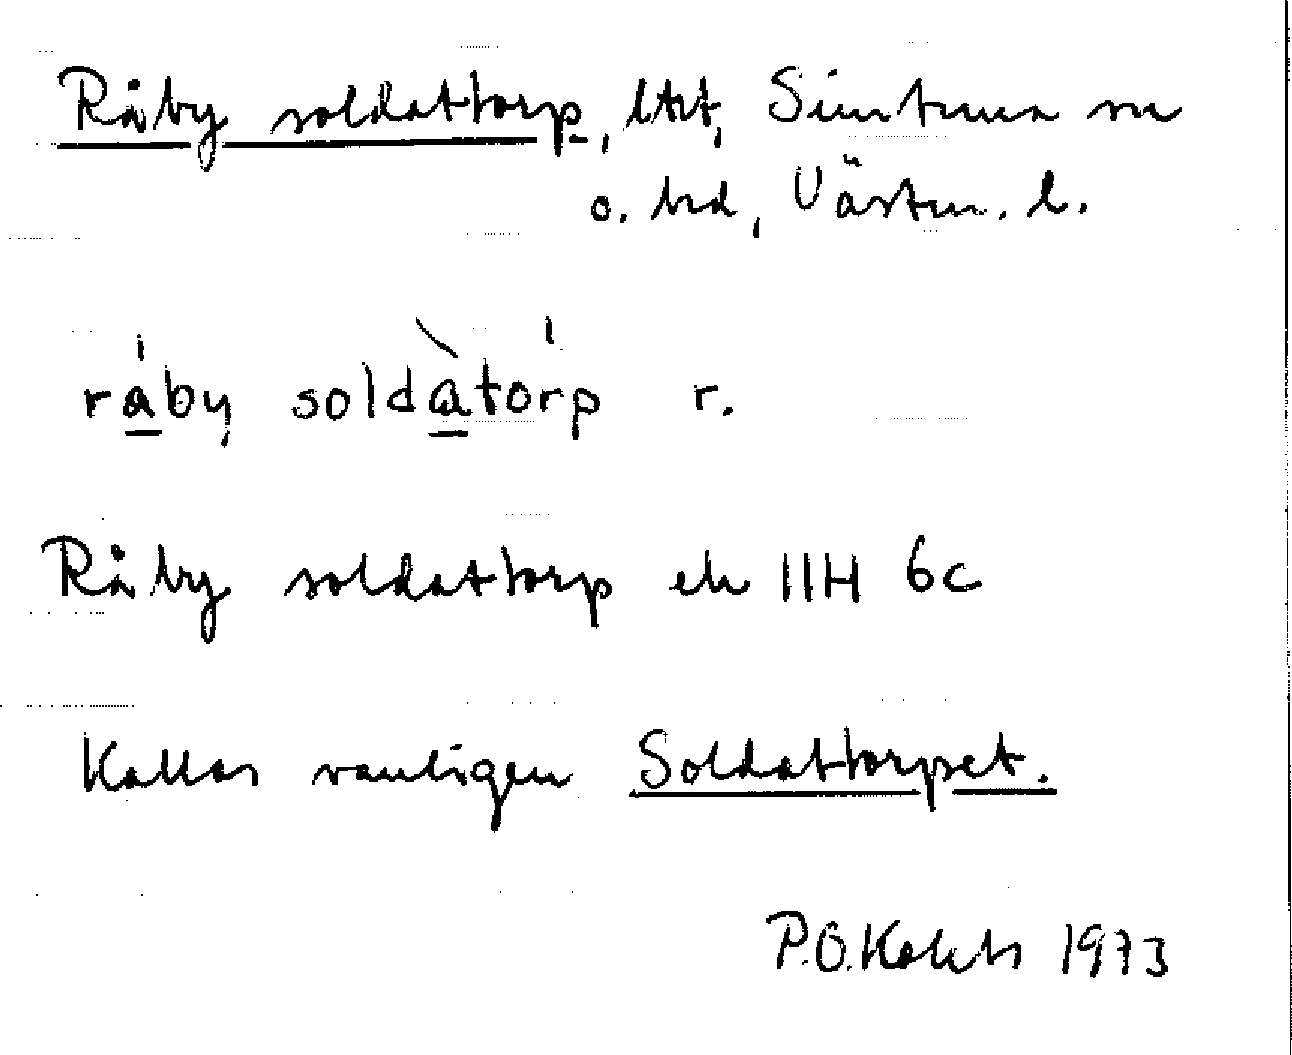 Råby soldattorp, ltrt, Simtuna sn
o. hd, Västm. l.
råby soldàtórp r.
Råby soldattorp ek 11H 6c
Kallas vanligen Soldattorpet.
P.O. 1973